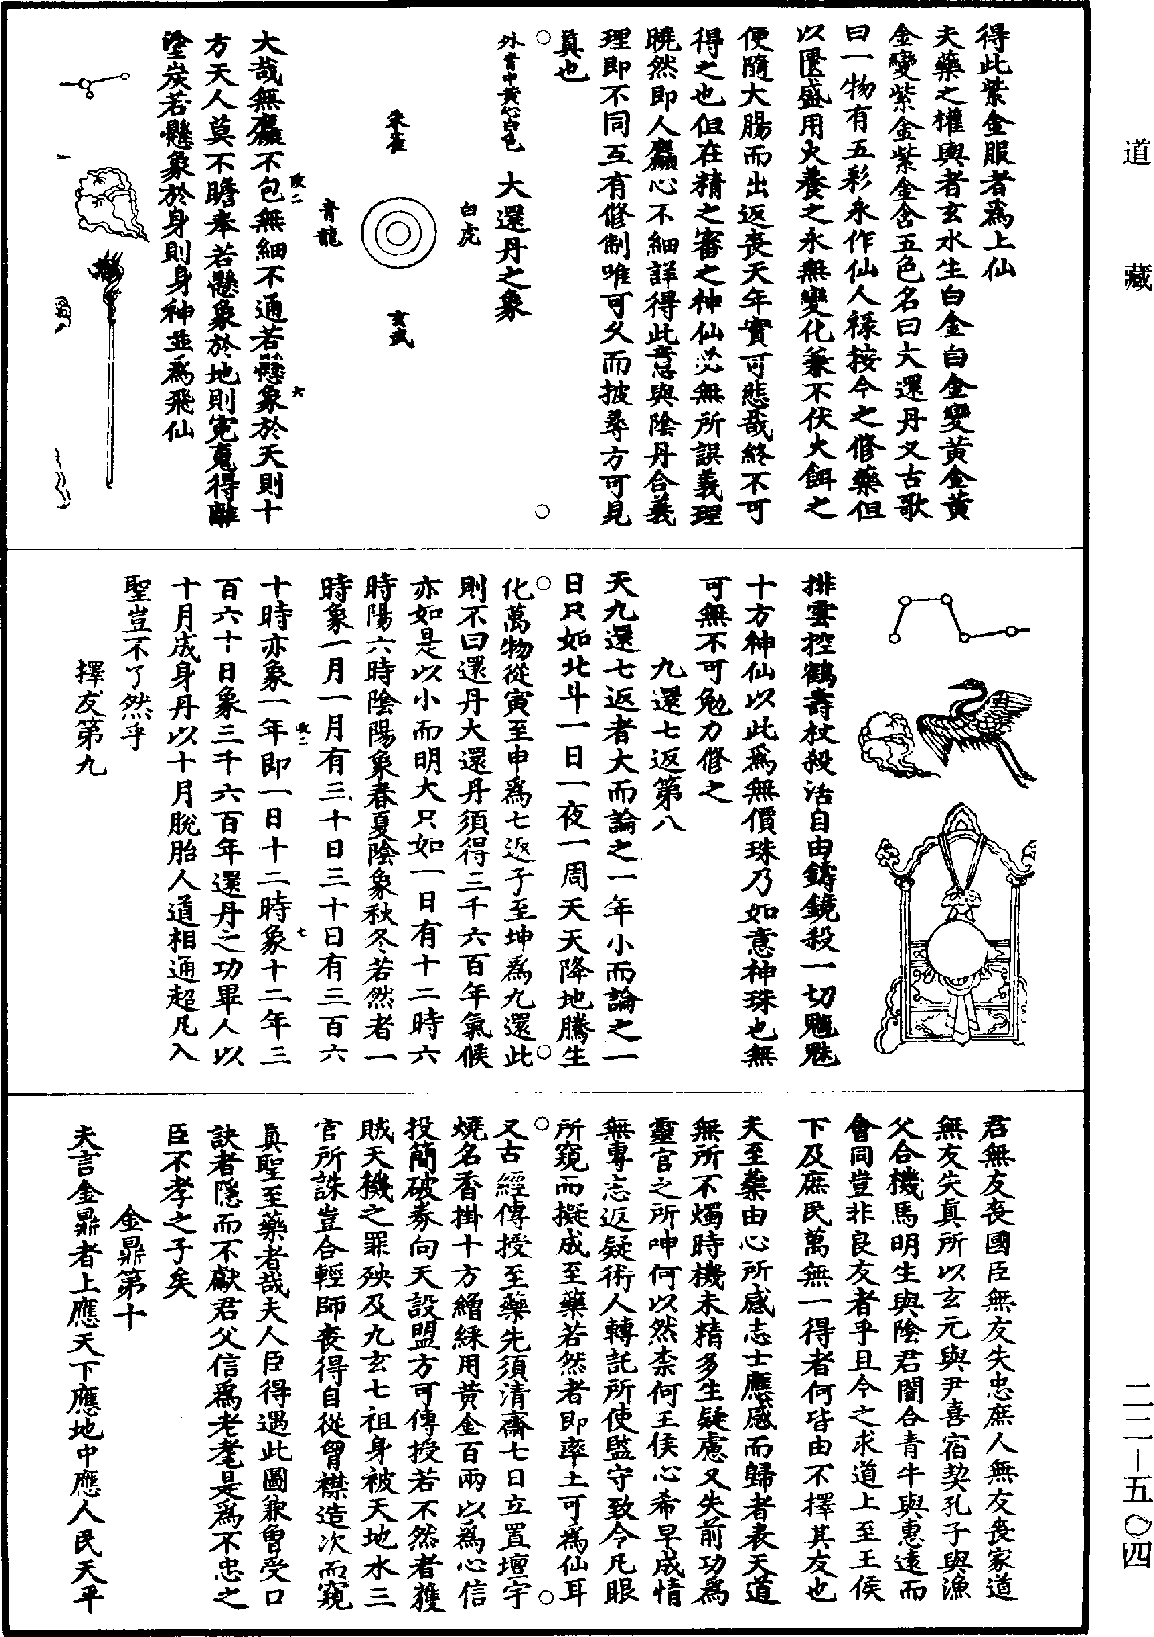 道藏
二二－五〇四
得此紫金服者爲上仙
夫藥之權輿者玄水生白金白金變黃金黃
金變紫金紫金含五色名曰大還丹又古歌
曰一物有五彩永作仙人祿按今之修藥但
以匱盛用火養之永無變化兼不伏火餌之
便隨大腸而出返喪天年實可悲哉終不可
得之也但在精之審之神仙必無所誤義理
曉然即人麤心不細詳得此意與陰丹合義
理即不同互有修制唯可久而披尋方可見
眞也
外青中黃心白色
大還丹之象
朱雀
白虎
青龍
玄武
大哉無麤不包無細不通若懸象於天則十
方天人莫不瞻奉若懸象於地則冤鬼得離
塗炭若懸象於身則身神並爲飛仙
排雲控鶴壽杖殺活自由鑄鏡殺一切魍魅
十方神仙以此爲無價珠乃如意神珠也無
可無不可勉力修之
九還七返第八
天九還七返者大而論之一年小而論之一
日只如北斗一日一夜一周天天降地騰生
化萬物從寅至申爲七返子至坤爲九還此
則不曰還丹大還丹須得三千六百年氣候
亦如是以小而明大只如一日有十二時六
時陽六時陰陽象春夏陰象秋冬若然者一
時象一月一月有三十日三十日有三百六
十時亦象一年即一日十二時象十二年三
百六十日象三千六百年還丹之功畢人以
十月成身丹以十月脫胎人道相通超凡入
聖豈不了然乎
擇友第九
君無友喪國臣無友失忠庶人無友喪家道
無友失真所以玄元與尹喜宿契孔子與漁
父合機馬明生與陰君闇合青牛與惠遠而
會同豈非良友者乎且今之求道上至王侯
下及庶民萬無一得者何皆由不擇其友也
夫至藥由心所感志士應感而歸者表天道
無所不燭時機未精多生疑慮又失前功爲
靈官之所呻何以然柰何王侯心希早成情
無專志返疑術人轉託所使監守致令凡眼
所窺而擬成至藥若然者即率土可爲仙耳
又古經傳授至藥先須清齋七日立置壇宇
燒名香掛十方繒綵用黃金百兩以爲心信
投簡破券向天設盟方可傳授若不然者獲
賊天機之罪殃及九玄七祖身被天地水三
官所誅豈合輕師喪得自從胷襟造次而窺
眞聖至藥者哉夫人臣得遇此圖兼曾受口
訣者隱而不獻君父信爲老耄是爲不忠之
臣不孝之子矣
金鼎第十
夫言金鼎者上應天下應地中應人民天平